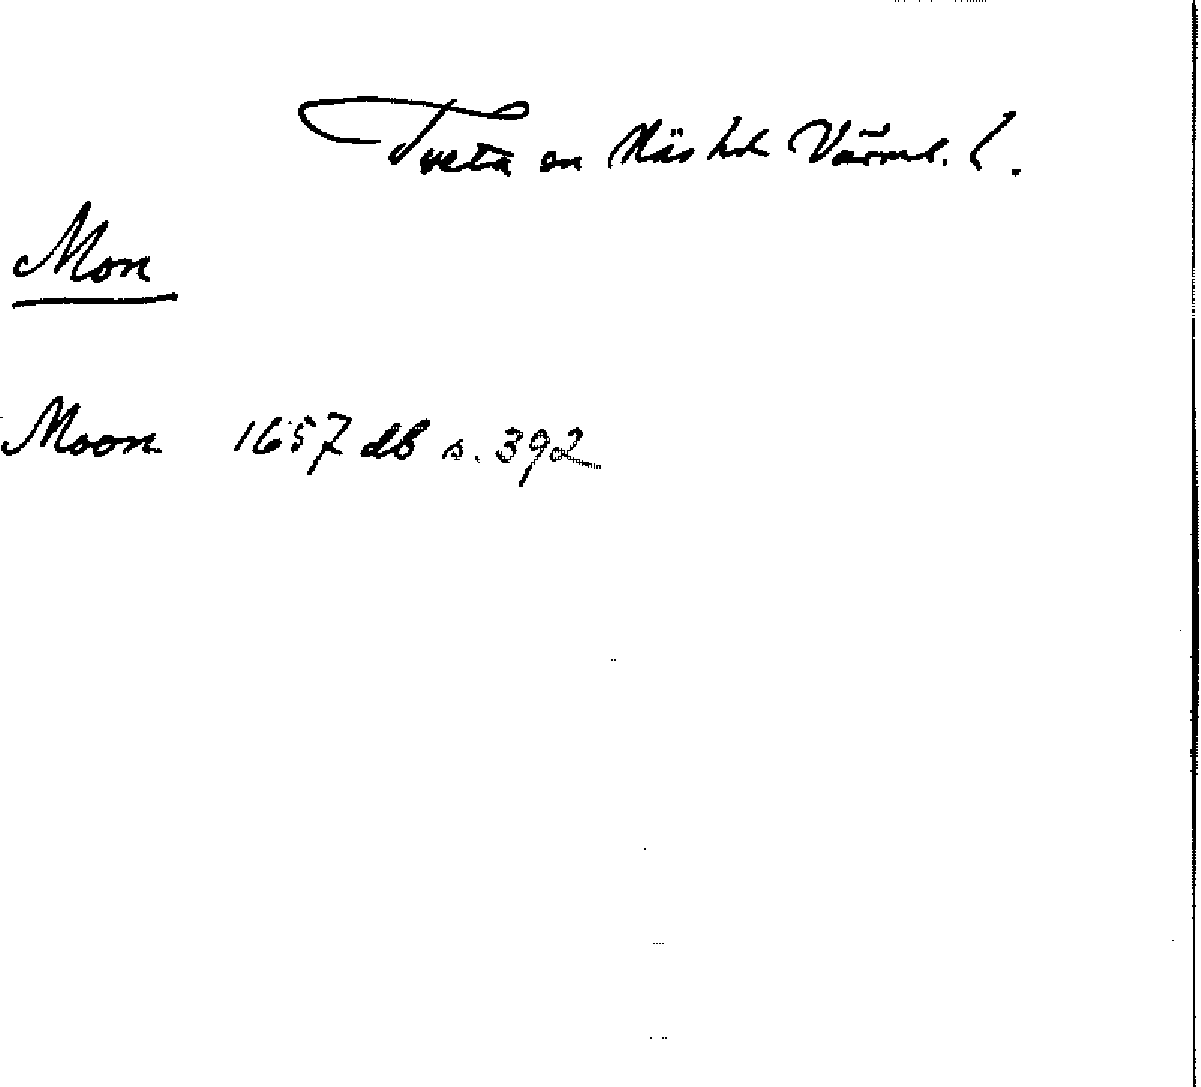 Tveta sn Näs hd Värml. l.
Mon
Moon 1657 db s. 392